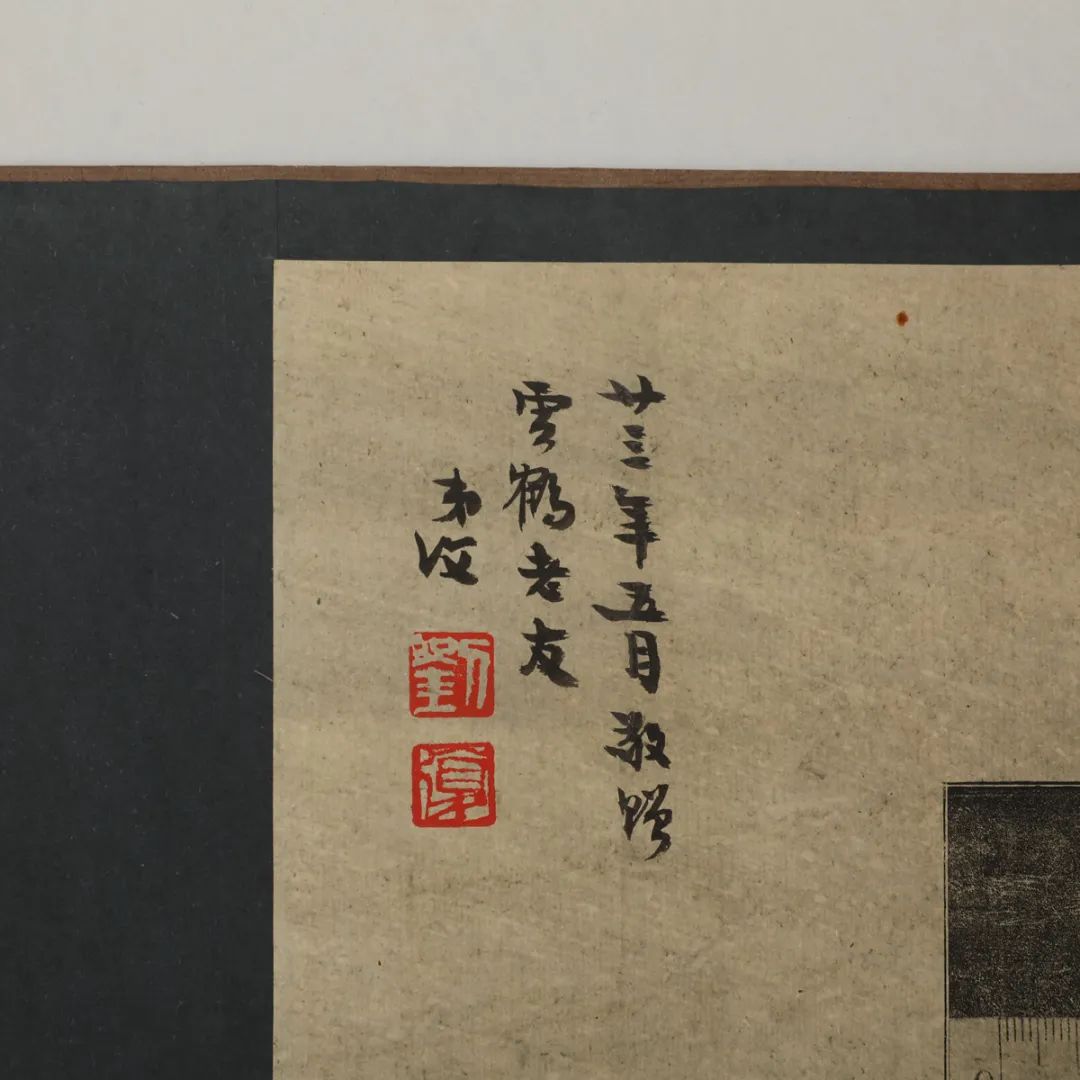 廿三年五月敬贈
雲鶴老友
弟復
劉
復